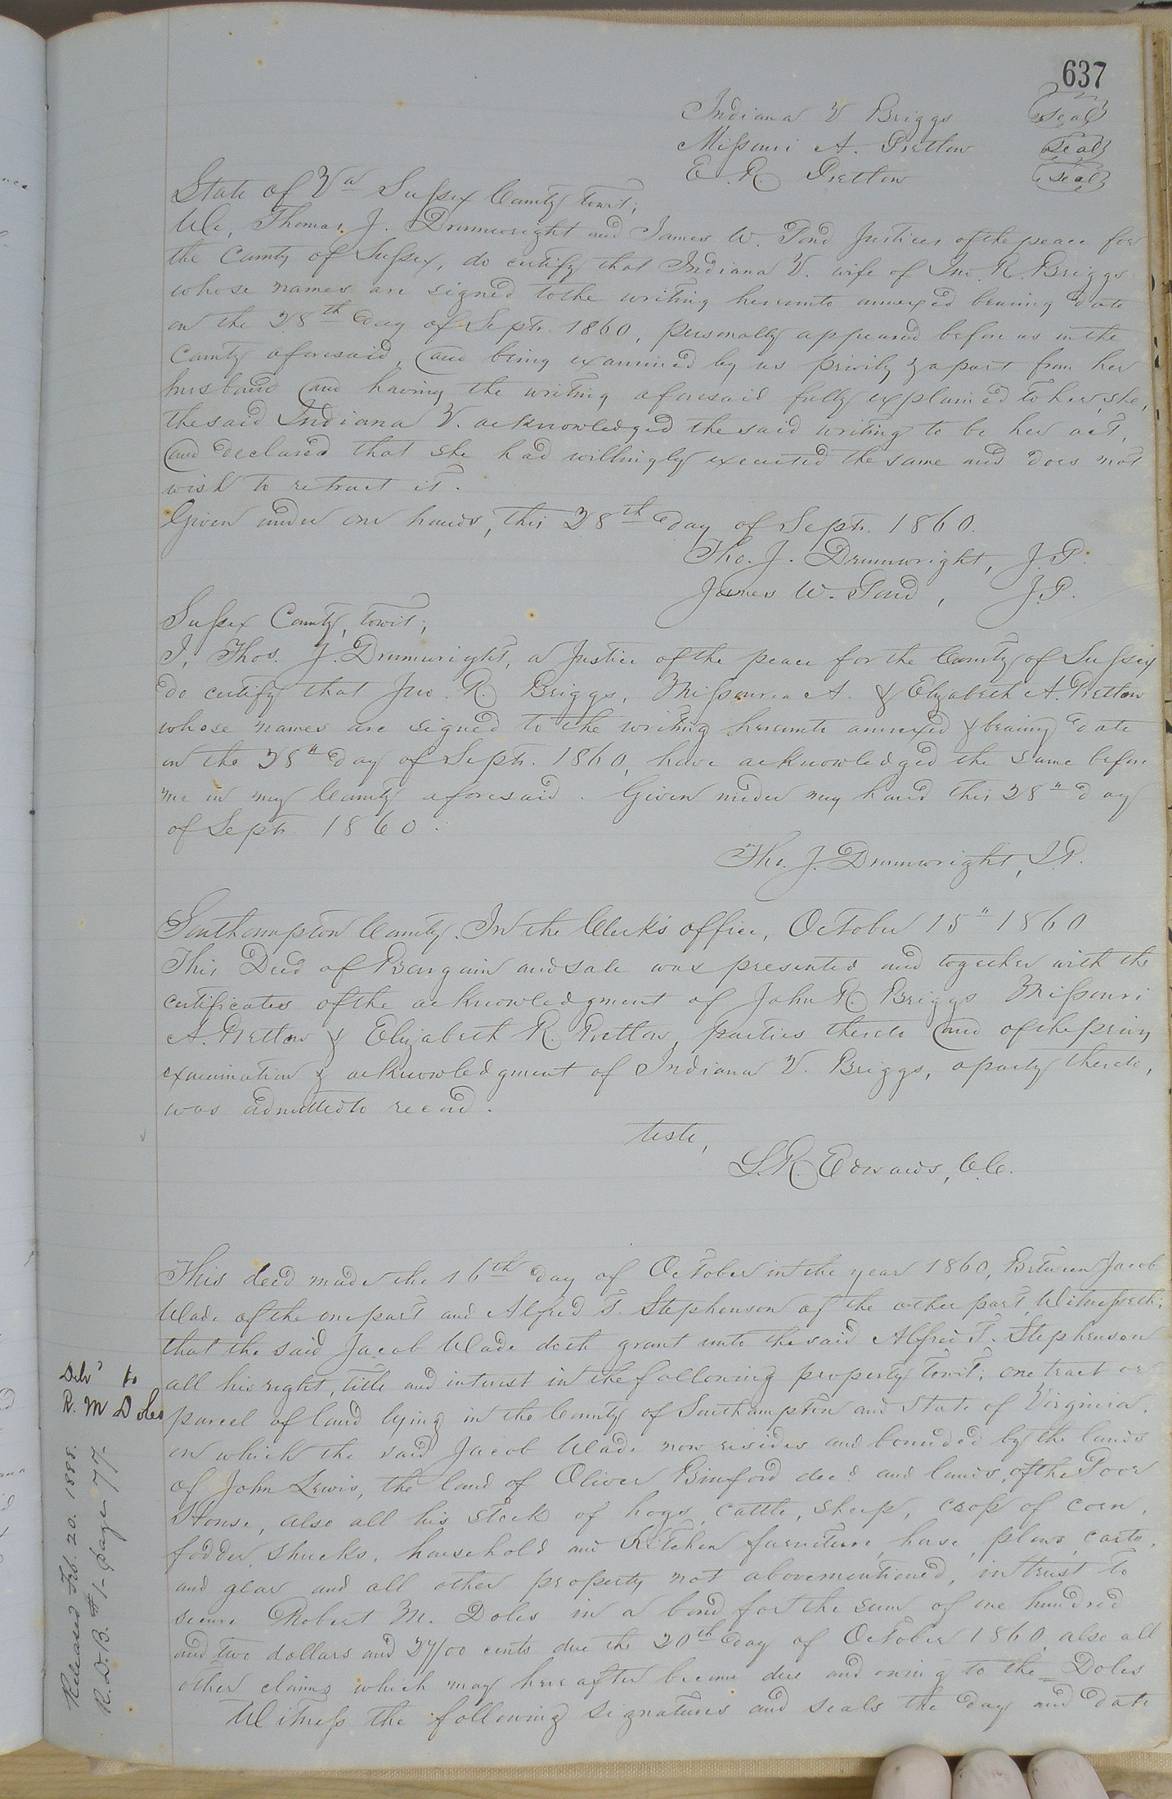 637
Indiana V Briggs (seal)
Missouri A. Pretlow (seal)
E. R. Pretlow (seal)
State of Va Sussex County towit;
We, Thomas J. Drumwright and James W. Pond Justices of the peace for
the County of Sussex, do certify that Indiana V. wife of Jno. R. Briggs
whose names are signed to the writing hereunto annexed bearing date
on the 28th day of Sept. 1860, personally appeared before us in the
County aforesaid, and being examined by us privily & apart from her
husband and having the writing aforesaid fully explained to her, she,
the said Indiana V. acknowledged the said writing to be her act,
and declared that she had willingly executed the same and does not
wish to retract it.
Given under our hands, this 28th day of Sept. 1860.
Tho. J. Drumwright, J.P.
James W. Pond, J.P.
Sussex County, towit;
I, Thos. J. Drumwright, a Justice of the peace for the County of Sussex
do certify that Jno. R. Briggs, Missouri A. & Elizabeth A. Pretlow
whose names are signed to the writing hereunto annexed & bearing date
on the 28" day of Sept. 1860, have acknowledged the same before
me in my County aforesaid. Given under my hand this 28" day
of Sept. 1860.
Tho. J. Drumwright, J.P.
Southampton County. In the Clerk's office, October 15" 1860
This Deed of Bargain and sale was presented and together with the
certificates of the acknowledgment of John R Briggs Missouri
A. Pretlow & Elizabeth R. Pretlow, parties thereto and of the privy
examination & acknowledgment of Indiana V. Briggs, a party thereto,
was admitted to record.
teste,
L.R. Edwards, C.C.
This deed made the 16th day of October in the year 1860, Between Jacob
Wade of the one part and Alfred T. Stephenson of the other part, Witnesseth;
that the said Jacob Wade doth grant unto the said Alfred T. Stephenson
all his right, title and interest in the following property towit; one tract or
parcel of land lying in the County of Southampton and State of Virginia,
on which the said Jacob Wade now resides and bounded by the lands
of John Lewis, the land of Oliver Binford dec'd and lands of the Poor
House, also all his stock of hogs, cattle, sheep, crop of corn,
fodder, shucks, household and Kitchen furniture, horse, plows, carts,
and gear and all other property not abovementioned, in trust to
secure Robert M. Doles in a bond for the sum of one hundred
and two dollars and 27/00 cents due the 20th day of October 1860, also all
other claims which may hereafter become due and owing to the Doles
Witness the following signatures and seals the day and date
Delv'd to
R. M Doles
Released Feb. 20. 1888.
R. D. B. #1- page 77.